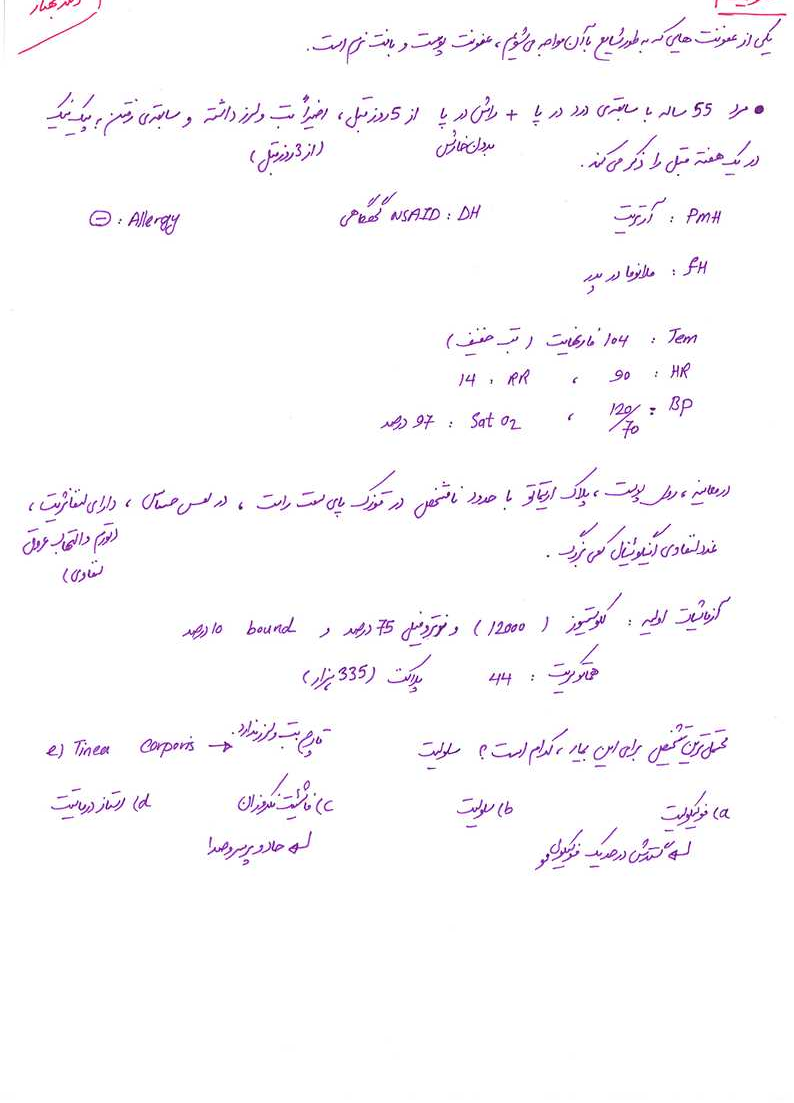 یکی از عفونت هایی که به طور شایع با آن مواجه می‌شویم، عفونت پوست و بافت نرم است.
• مرد 55 ساله با سابقه‌ی درد در پا + راش در پا از 5 روز قبل، اخیراً تب و لرز داشته و سابقه‌ی رفتن به پیک نیک
بدون خارش (از 3 روز قبل)
در یک هفته قبل را ذکر می‌کند.
PMH : آرتریت DH : NSAID گهگاهی Allergy : ⊖
FH : ملانوما در پدر
Tem : 104 فارنهایت (تب خفیف)
HR : 90 ، RR : 14
BP : 120/70 ، Sat O2 : 97 درصد
در معاینه، روی پوست، پلاک اریتماتو با حدود نامشخص در قوزک پای سمت راست، در لمس حساس، دارای لنفانژیت،
(تورم و التهاب عروق لنفاوی)
غدد لنفاوی اینگوئینال کمی بزرگ.
آزمایشات اولیه : لکوسیتوز (12000) و نوتروفیل 75 درصد و bound 10 درصد
هماتوکریت : 44 پلاکت (335 هزار)
محتمل ترین تشخیص برای این بیمار، کدام است؟ سلولیت e) Tinea Corporis → قارچ تب و لرز ندارد.
a) فولیکولیت b) سلولیت c) فاشئیت نکروزان d) استاز درماتیت
↳ گسترش در حد یک فولیکول مو ↳ حاد و پر سر و صدا